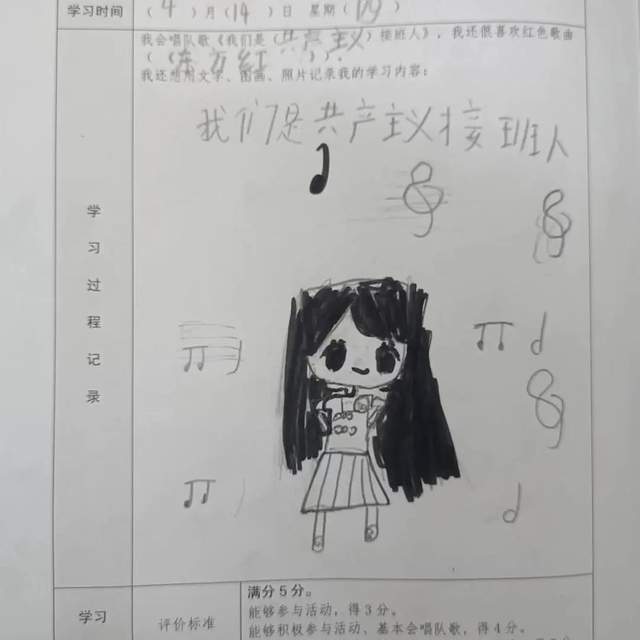 学习时间 (4)月(14)日 星期(四)
我会唱队歌《我们是(共产主义)接班人》，我还很喜欢红色歌曲
《(东方红)》。
我还想用文字、图画、照片记录我的学习内容：
我们是共产主义接班人
学习过程记录
学习 评价标准
满分5分。
能够参与活动，得3分。
能够积极参与活动、基本会唱队歌，得4分。